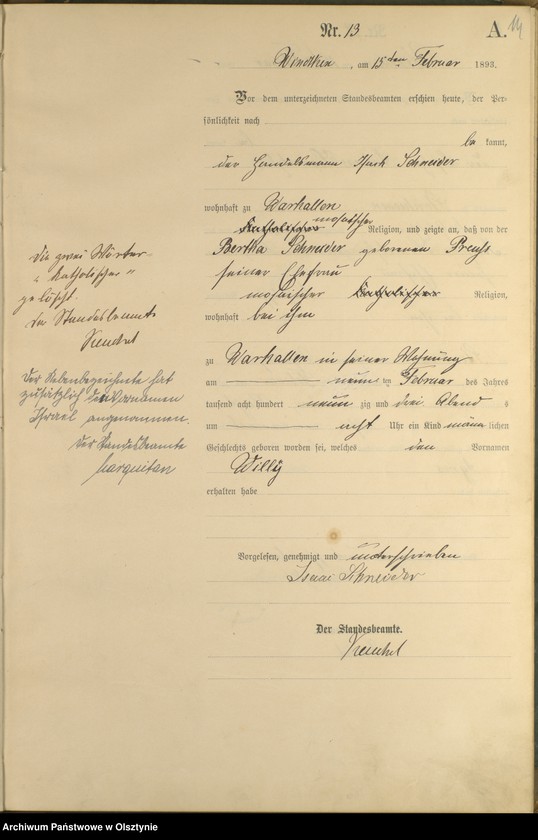 Nr. 13
A. 14
am 15ten Februar 1893.
Vor dem unterzeichneten Standesbeamten erschien heute, der Per-
sönlichkeit nach
be kannt,
der Handelsmann Isack Schneider
wohnhaft zu Warkallen
mosaischer
katholischer Religion, und zeigte an, daß von der
Bertha Schneider geborenen Preuß
seiner Ehefrau
mosaischer katholischer Religion,
wohnhaft bei ihm
zu Warkallen in seiner Wohnung
am neun ten Februar des Jahres
tausend acht hundert neun zig und drei Abend s
um acht Uhr ein Kind männ lichen
Geschlechts geboren worden sei, welches den Vornamen
Willy
erhalten habe
Vorgelesen, genehmigt und unterschrieben
Schneider
Der Standesbeamte.
Die zwei Wörter
„katholischer"
gelöscht.
Der Standesbeamte
Der Nebenbezeichnete hat
zusätzlich den Vornamen
Israel angenommen.
Der Standesbeamte
Archiwum Państwowe w Olsztynie